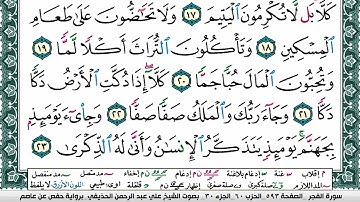 كَلَّا بَل لَّا تُكْرِمُونَ الْيَتِيمَ ١٧ وَلَا تَحَاضُّونَ عَلَىٰ طَعَامِ
الْمِسْكِينِ ١٨ وَتَأْكُلُونَ التُّرَاثَ أَكْلًا لَّمًّا ١٩
وَتُحِبُّونَ الْمَالَ حُبًّا جَمًّا ٢٠ كَلَّا إِذَا دُكَّتِ الْأَرْضُ دَكًّا
دَكًّا ٢١ وَجَاءَ رَبُّكَ وَالْمَلَكُ صَفًّا صَفًّا ٢٢ وَجِايءَ يَوْمَئِذٍ
بِجَهَنَّمَ يَوْمَئِذٍ يَتَذَكَّرُ الْإِنسَانُ وَأَنَّىٰ لَهُ الذِّكْرَىٰ ٢٣
سورة الفجر الصفحة ٥٩٣ الحزب ٦٠ الجزء ٣٠ بصوت الشيخ علي عبد الرحمن الحذيفي برواية حفص عن عاصم